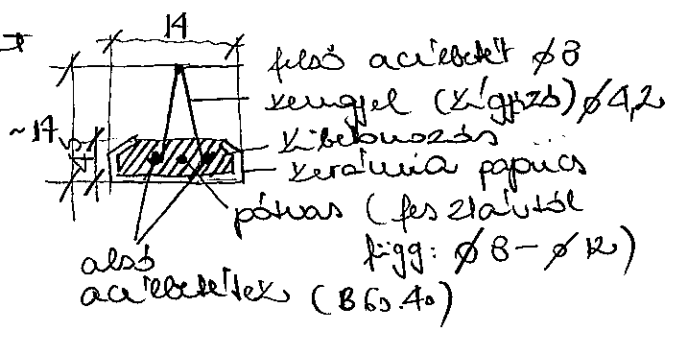 14
felső acélbetét ø8
kengyel (kígyzó) ø4,2
~14
kibetonozás
4,5
kerámia papucs
pótvas (fesztávtól
függ: ø8-ø12)
alsó
acélbetétek (B60.40)